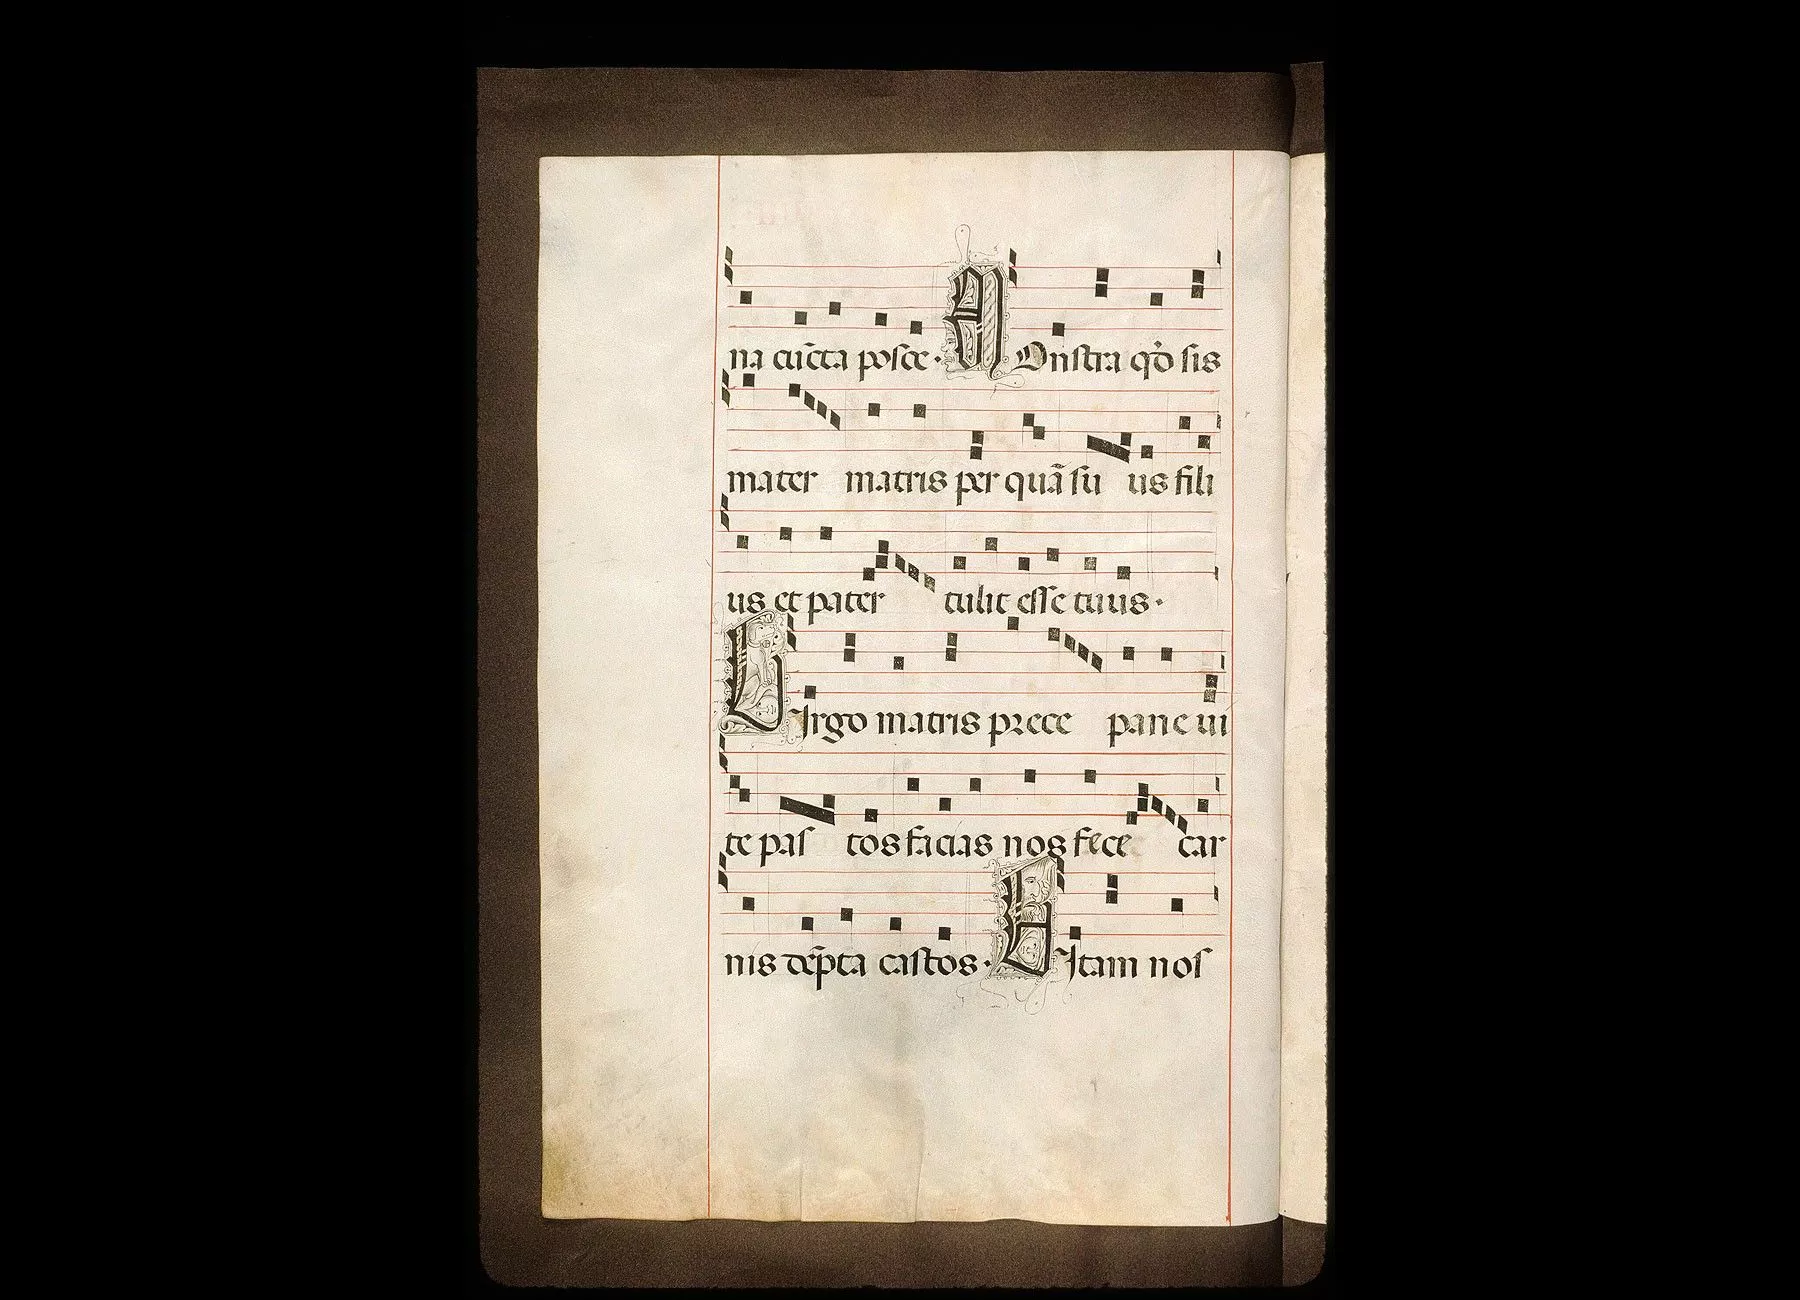 na cũcta posce · M Onstra qď sis
mater matris per quã su us fili
us et pater tulit esse tuus ·
V Irgo matris prece pane ui
te pas tos facias nos fece car
nis dẽpta castos · V Itam nos